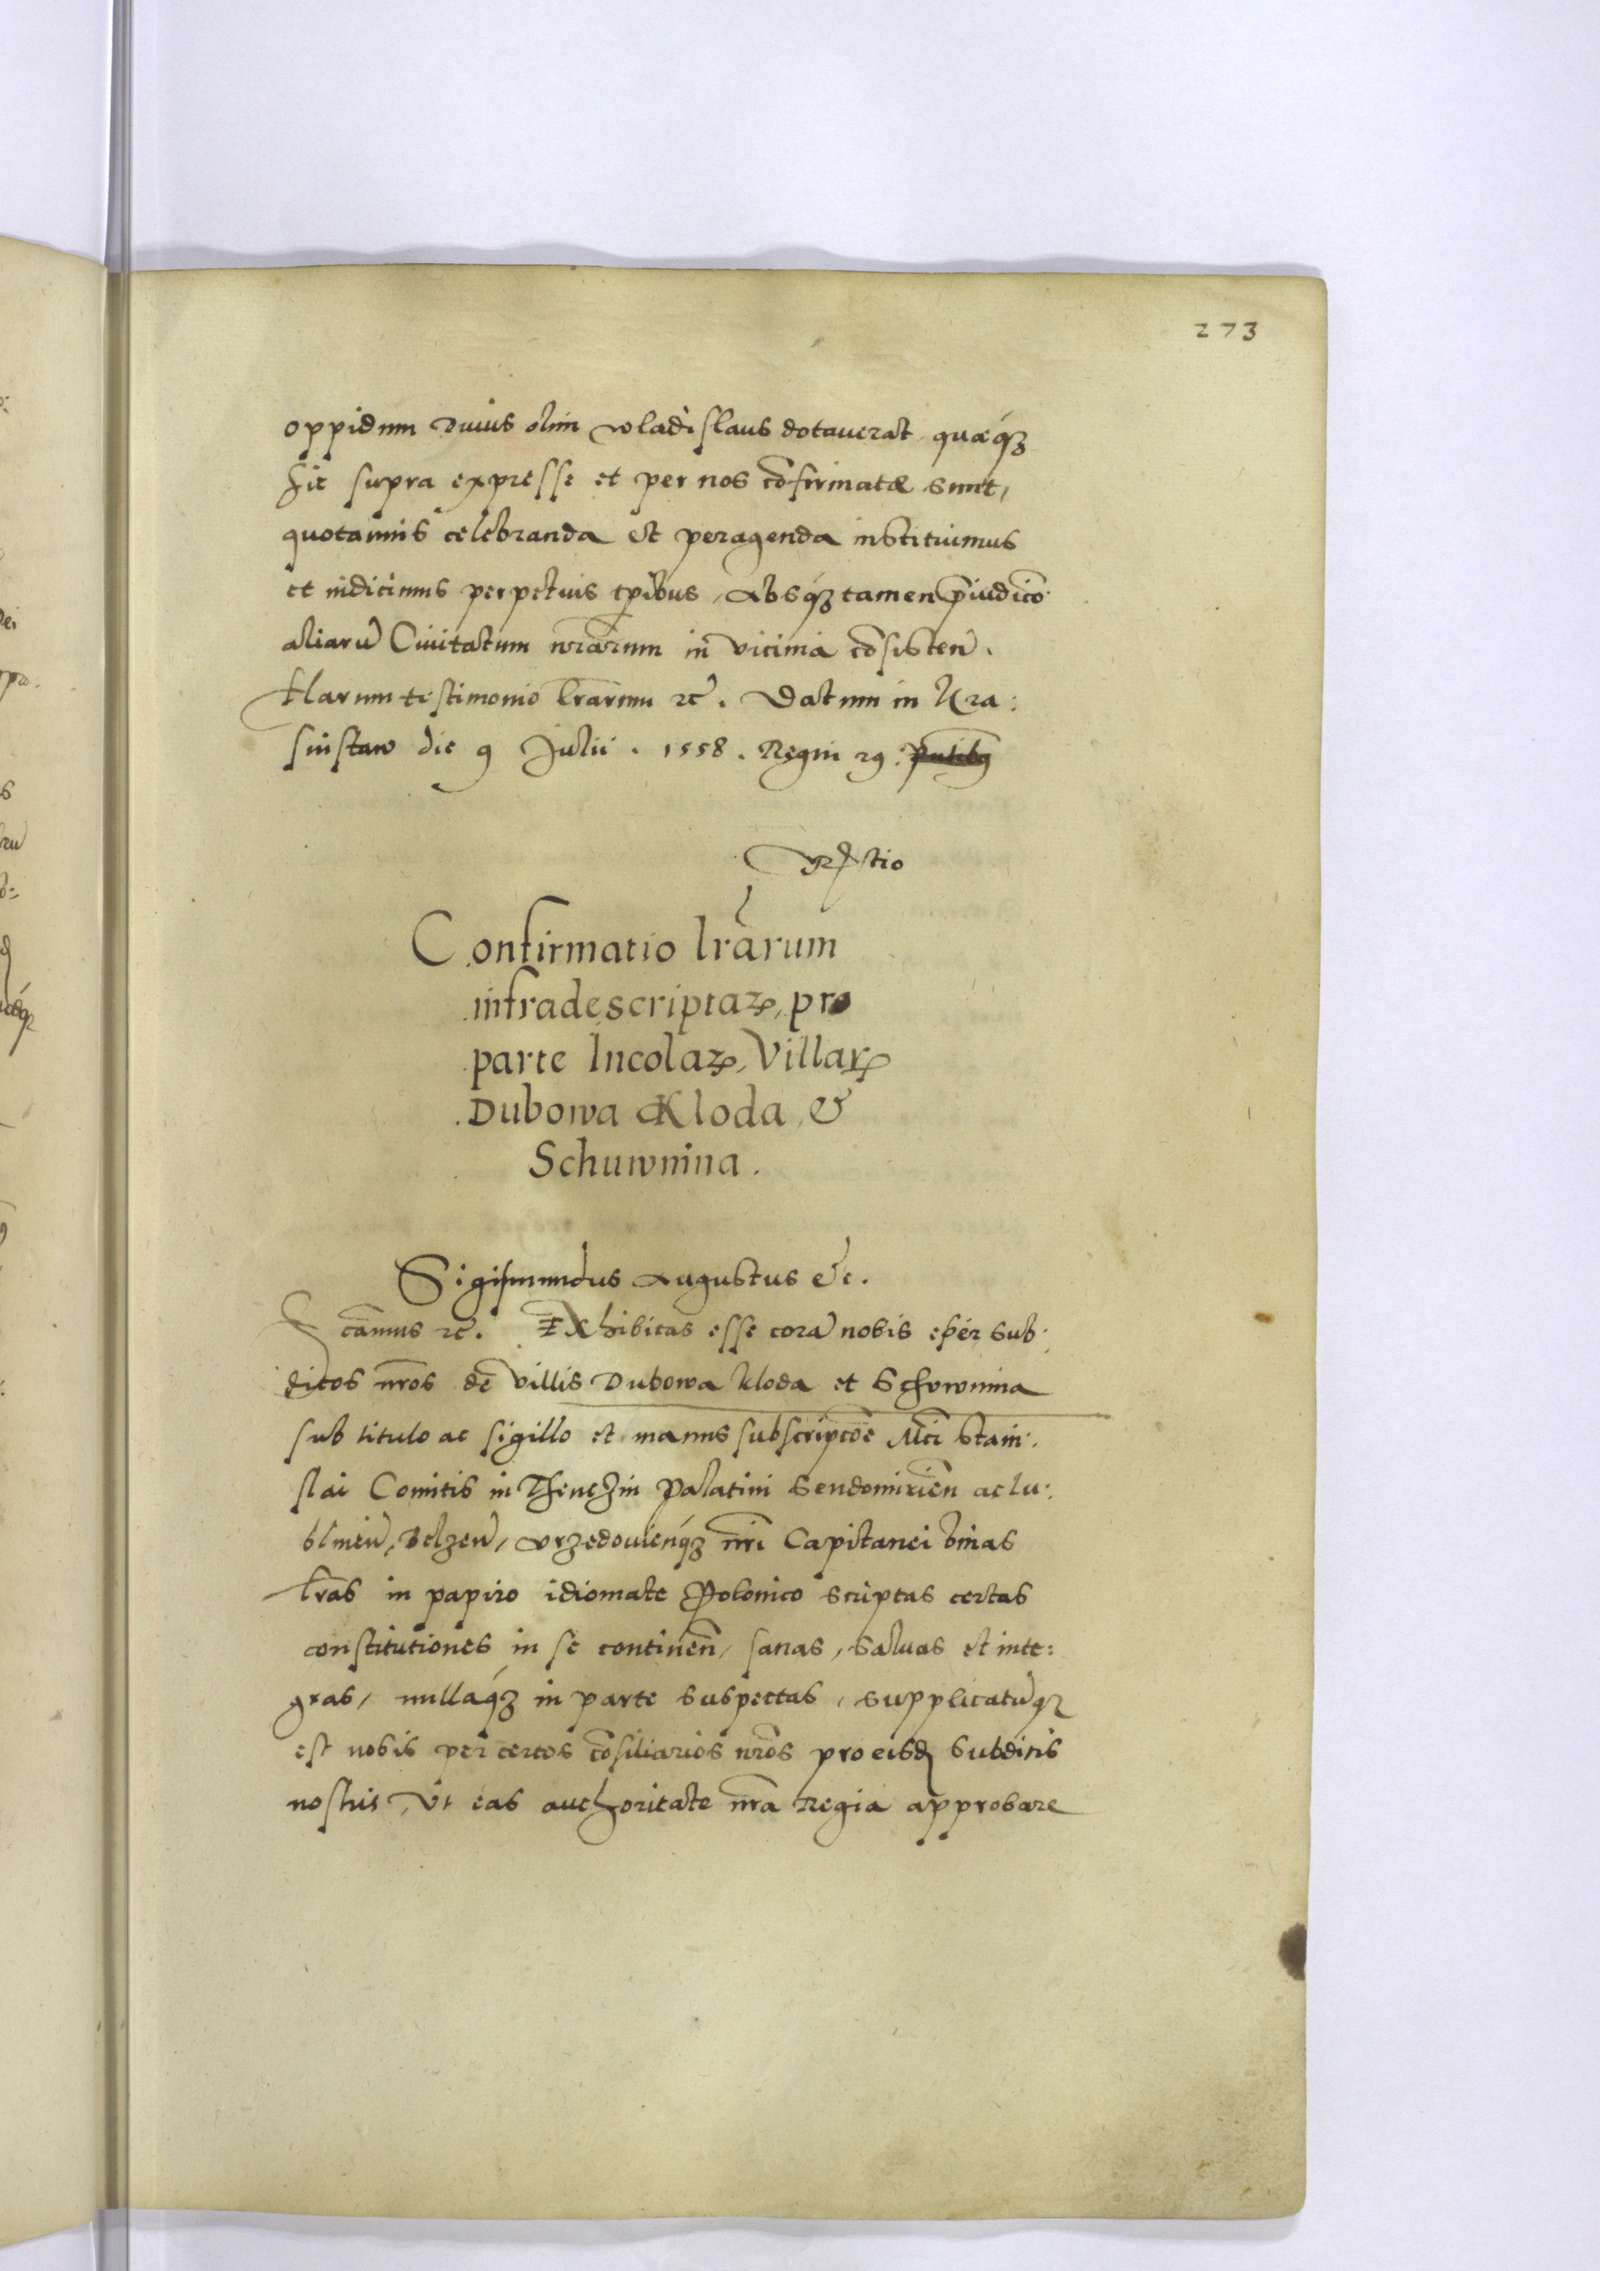 273
oppidum Diuus olim wladislaus dotauerat quæq́ꝫ
hic supra expresse et per nos cōfirmatæ sunt,
quotannis celebranda et peragenda instituimus
et indicimus perpetuis tp̄ibus, Absq́ꝫ tamen p̄iudicō
aliarū Ciuitatum nr̄arum in vicinia cōsisten̄.
Harum testimonio lr̄arum ꝛc̄. Datum in Kra:
snistaw die 9 Julii. 1558. Regni 29:
Confirmatio lr̄arum
infradescriptaꝝ, pro
parte Incolaꝝ, Villarꝝ
Dubowa Kloda, &
Schuwnina.
Sigismundus Augustus &c.
cāmus ꝛc̄. Exhibitas esse corā nobis per sub:
ditos nr̄os de villis Dubowa kloda et Schvwnina
sub titulo ac sigillo et manus subscriptōe Mci Stani:
slai Comitis in Thenchin Palatini Sendomirien̄ ac lu:
blinen̄, Belzen̄, Vrzedouienq́ꝫ nr̄i Capitanei binas
lr̄as in papiro idiomate Polonico scriptas certas
constitutiones in se continen̄, sanas, saluas et inte:
gras, nullaq́ꝫ in parte suspectas, supplicatūqꝫ
est nobis per certos cōsiliarios nr̄os pro eisdꝫ subditis
nostris, Vt eas authoritate nr̄a Regia approbare